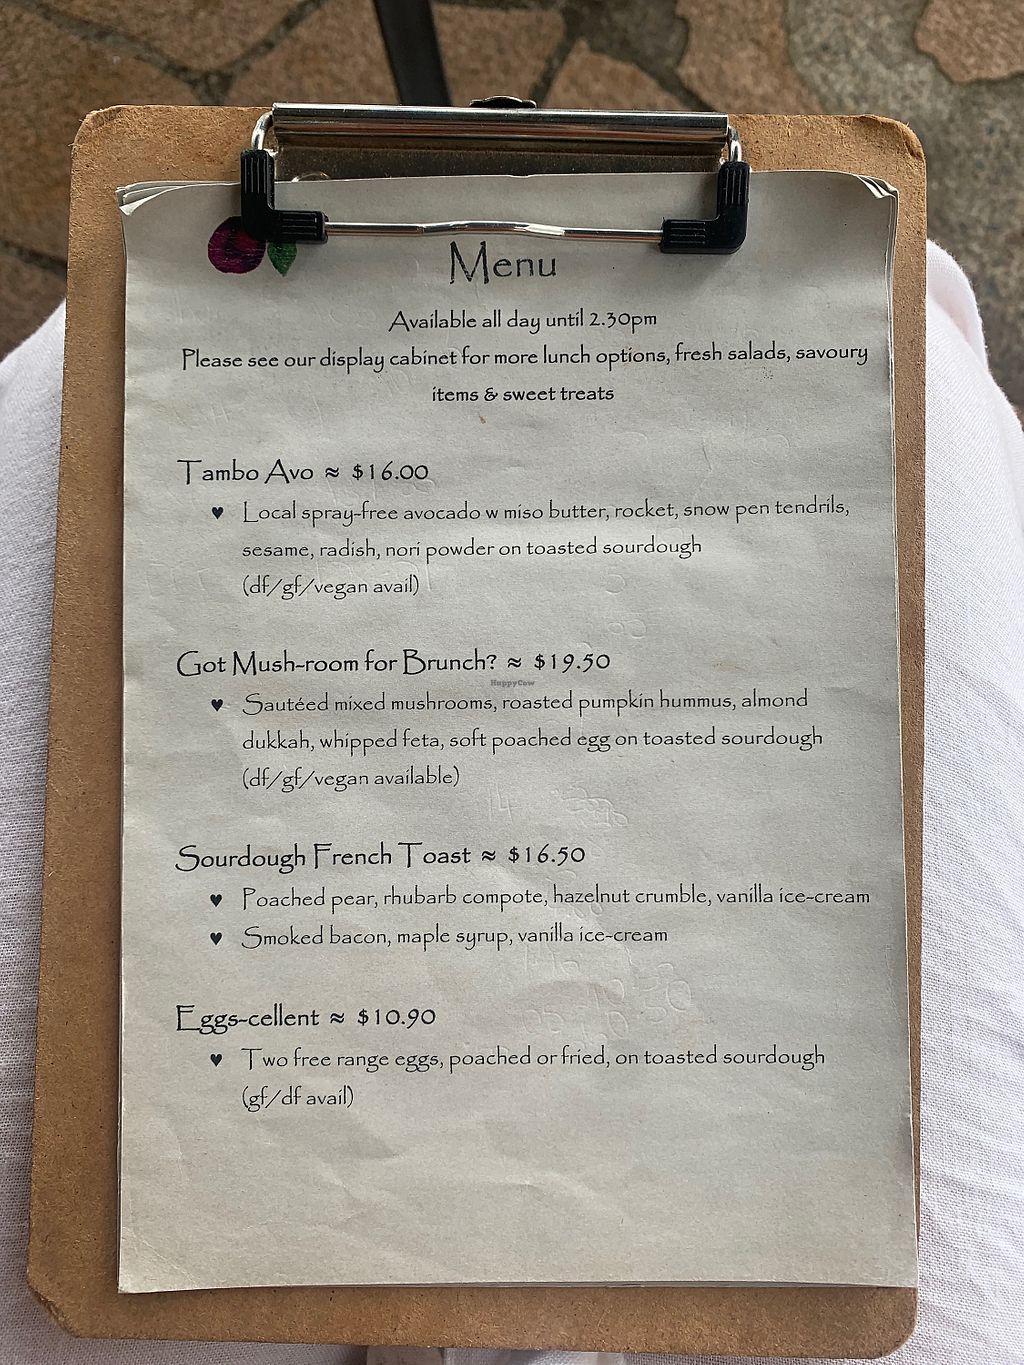 Menu
Available all day until 2.30pm
Please see our display cabinet for more lunch options, fresh salads, savoury
items & sweet treats
Tambo Avo ≈ $16.00
♥ Local spray-free avocado w miso butter, rocket, snow pen tendrils,
sesame, radish, nori powder on toasted sourdough
(df/gf/vegan avail)
Got Mush-room for Brunch? ≈ $19.50
HappyCow
♥ Sautéed mixed mushrooms, roasted pumpkin hummus, almond
dukkah, whipped feta, soft poached egg on toasted sourdough
(df/gf/vegan available)
Sourdough French Toast ≈ $16.50
♥ Poached pear, rhubarb compote, hazelnut crumble, vanilla ice-cream
♥ Smoked bacon, maple syrup, vanilla ice-cream
Eggs-cellent ≈ $10.90
♥ Two free range eggs, poached or fried, on toasted sourdough
(gf/df avail)